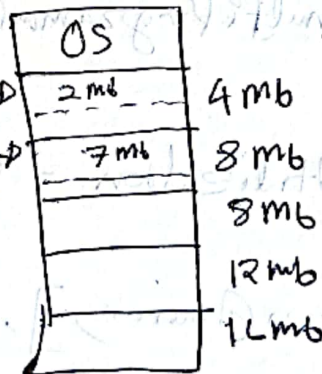 OS
2 mb 4 mb
7 mb 8 mb
8 mb
12 mb